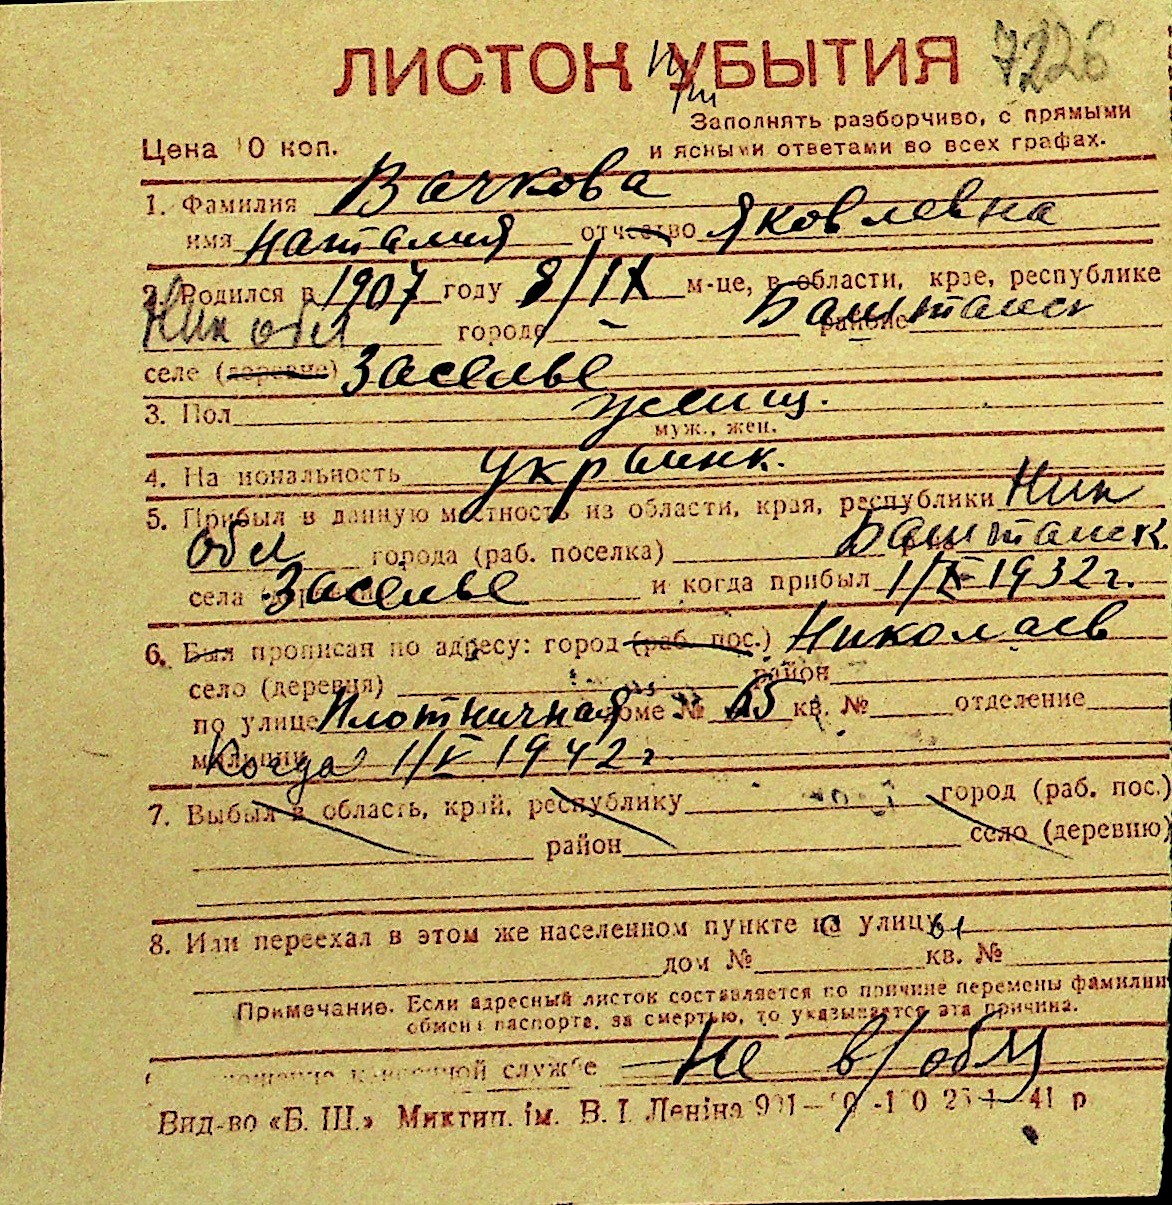 7226
ЛИСТОК УБЫТИЯ
Заполнять разборчиво, с прямыми
Цена 10 коп. и ясными ответами во всех графах.
1. Фамилия Вачкова
имя Наталия отчество Яковлевна
2. Родился в 1907 году 8/IX м-це, в области, крае, республике
Ник обл городе - районе Баштанск
селе (деревне) Заселье
3. Пол женщ.
муж., жен.
4. Национальность украинк.
5. Прибыл в данную местность из области, края, республики Ник
обл города (раб. поселка) Баштанск.
села Заселье и когда прибыл 1/X-1932 г.
6. Был прописан по адресу: город (раб. пос.) Николаев
село (деревня) район
по улице Плотничная доме № 65 кв. № отделение
милиции Когда 1/V 1942 г
7. Выбыл в область, край, республику город (раб. пос.)
район село (деревню)
8. Или переехал в этом же населенном пункте на улицу
дом № кв. №
Примечание. Если адресный листок составляется по причине перемены фамилии
обмена паспорта, за смертью, то указывается эта причина.
службе Не в/обяз
Вид-во «Б. Ш.» Миктип. ім. В. І. Леніна 41 р